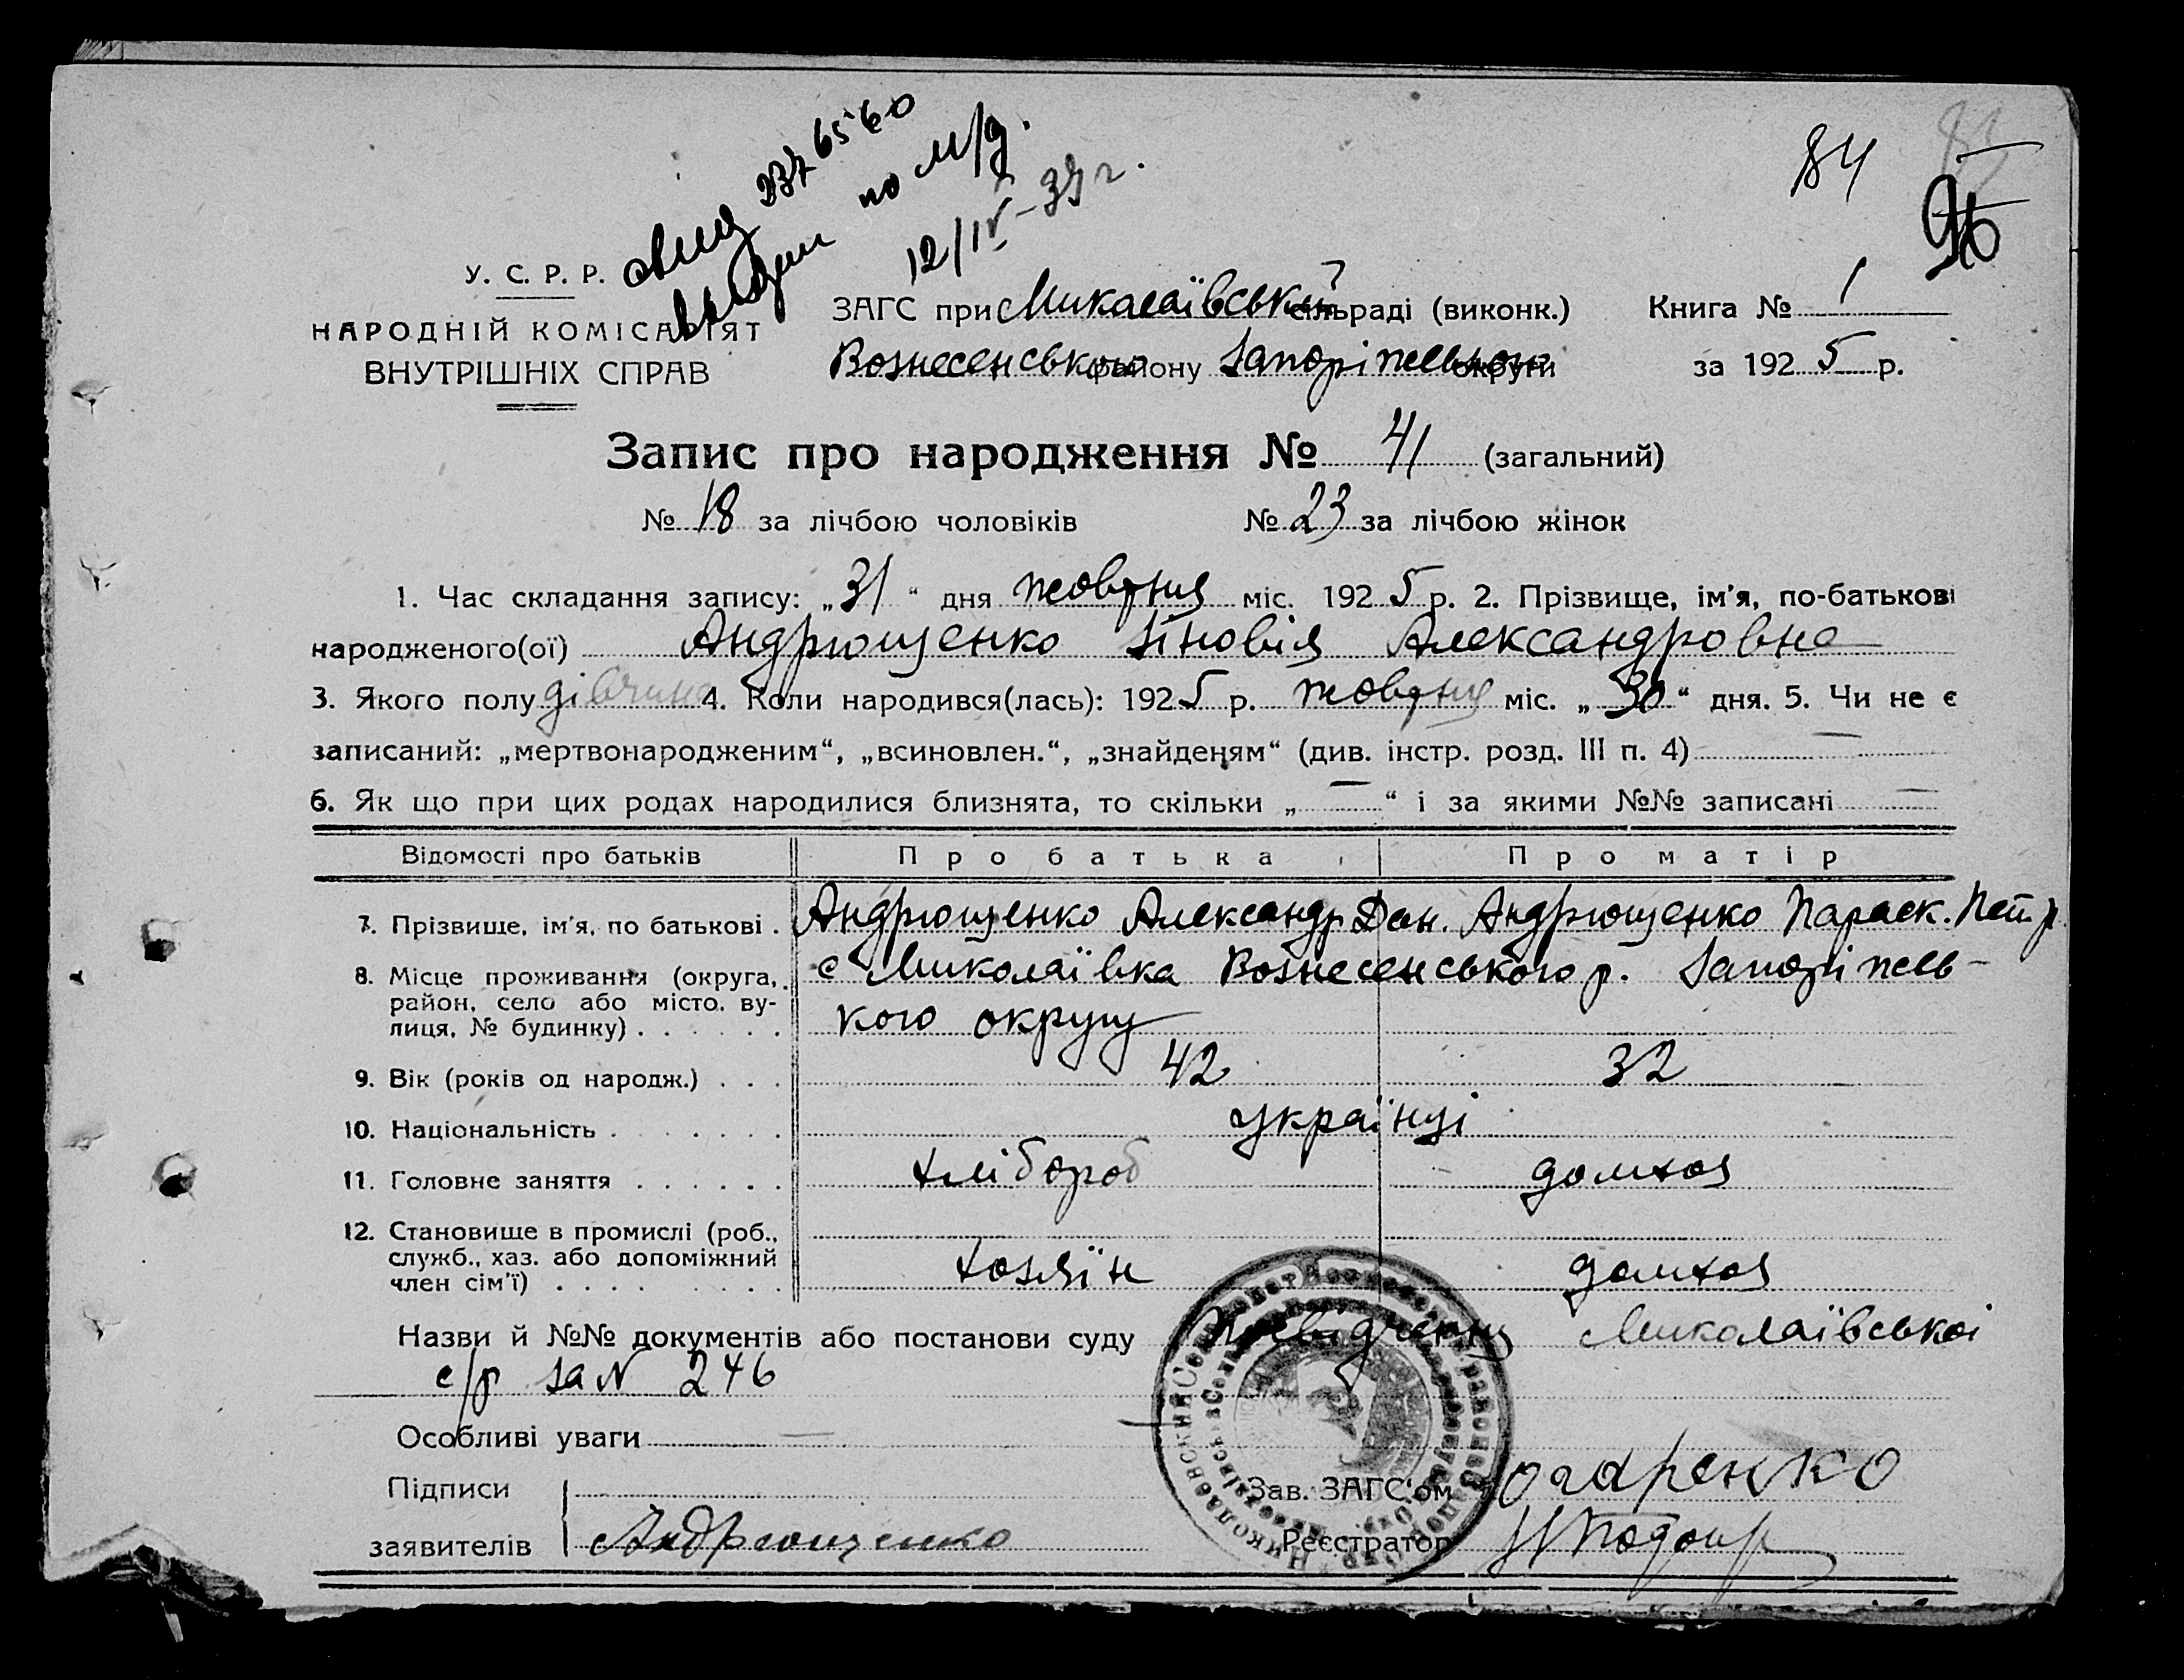 84
96
237 6560
по м/д.
12/IV-39 г.
У. С. Р. Р.
НАРОДНІЙ КОМІСАРІЯТ
ВНУТРІШНІХ СПРАВ
ЗАГС при Миколаївській сільраді (виконк.)
Вознесенського району Запоріжської округи
Книга № 1
за 1925 р.
Запис про народження № 41 (загальний)
№ 18 за лічбою чоловіків № 23 за лічбою жінок
1. Час складання запису: „31“ дня жовтня міс. 1925 р. 2. Прізвище, ім'я, по-батькові
народженого(ої) Андрющенко Зіновія Александровна
3. Якого полу дівчина 4. Коли народився(лась): 1925 р. жовтня міс. „30“ дня. 5. Чи не є
записаний: „мертвонародженим“, „всиновлен.“, „знайденям“ (див. інстр. розд. III п. 4) —
6. Як що при цих родах народилися близнята, то скільки „—“ і за якими №№ записані —
Відомості про батьків Про батька Про матір
7. Прізвище, ім'я, по батькові . Андрющенко Александр Дан. Андрющенко Параск. Петр.
8. Місце проживання (округа, с Миколаївка Вознесенського р. Запоріжсь-
район, село або місто, ву-
лиця, № будинку) . . . . . . кого округу
9. Вік (років од народж.) . . . 42 32
10. Національність . . . . . . . українці
11. Головне заняття . . . . . . хлібороб домхоз
12. Становище в промислі (роб.,
служб., хаз. або допоміжний
член сім'ї) . . . . . . . . хозяїн домхоз
Назви й №№ документів або постанови суду Посвідчення Миколаївської
с/р за N 246
Особливі уваги —
Підписи
заявителів Андрющенко
Зав. ЗАГС'ом
Реєстратор